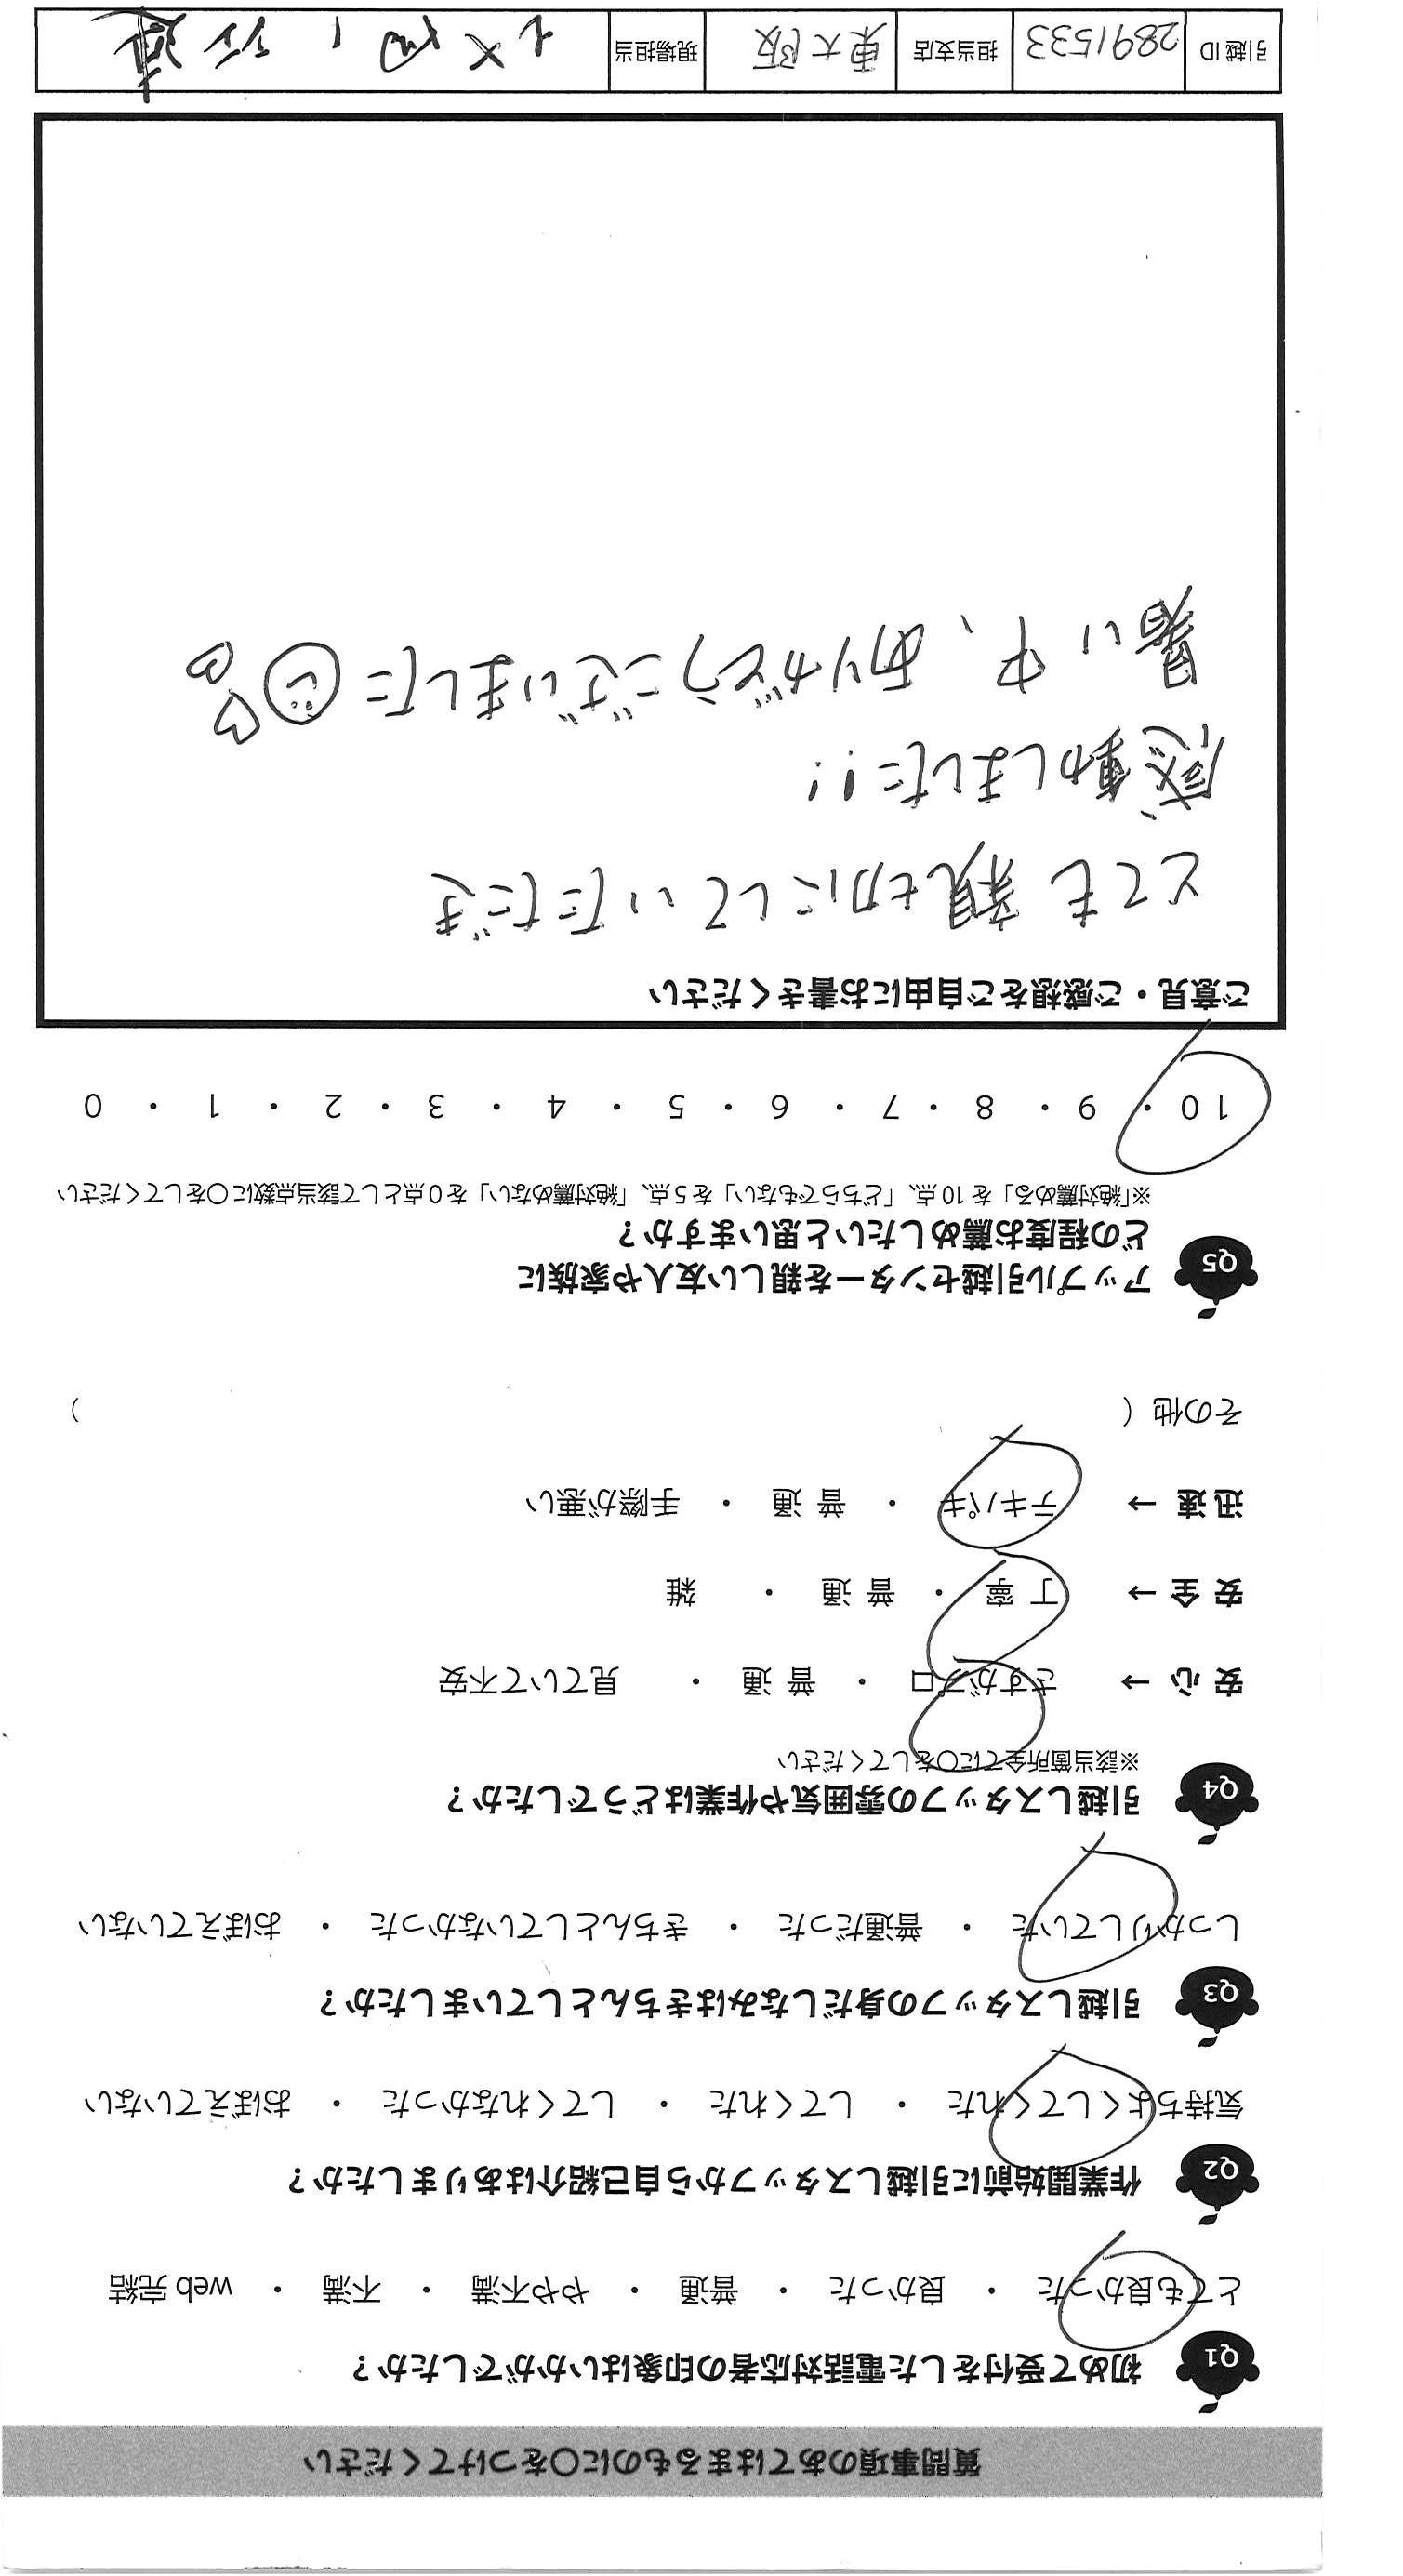 質問事項のあてはまるものに〇をつけてください
Q1 初めて受付をした電話対応者の印象はいかがでしたか？
とても良かった ・ 良かった ・ 普通 ・ やや不満 ・ 不満 ・ web 完結
Q2 作業開始前に引越しスタッフから自己紹介はありましたか？
気持ちよくしてくれた ・ してくれた ・ してくれなかった ・ おぼえていない
Q3 引越しスタッフの身だしなみはきちんとしていましたか？
しっかりしていた ・ 普通だった ・ きちんとしていなかった ・ おぼえていない
Q4 引越しスタッフの雰囲気や作業はどうでしたか？
※該当箇所全てに〇をしてください
安心 → さすがプロ ・ 普通 ・ 見ていて不安
安全 → 丁寧 ・ 普通 ・ 雑
迅速 → テキパキ ・ 普通 ・ 手際が悪い
その他（ ）
Q5 アップル引越センターを親しい友人や家族に
どの程度お薦めしたいと思いますか？
※「絶対薦める」を10点、「どちらでもない」を5点、「絶対薦めない」を0点として該当点数に〇をしてください
10 ・ 9 ・ 8 ・ 7 ・ 6 ・ 5 ・ 4 ・ 3 ・ 2 ・ 1 ・ 0
ご意見・ご感想をご自由にお書きください
とても親切にしていただき
感動しました!!
暑い中、ありがとうございました
引越ID 2891533 担当支店 東大阪 現場担当